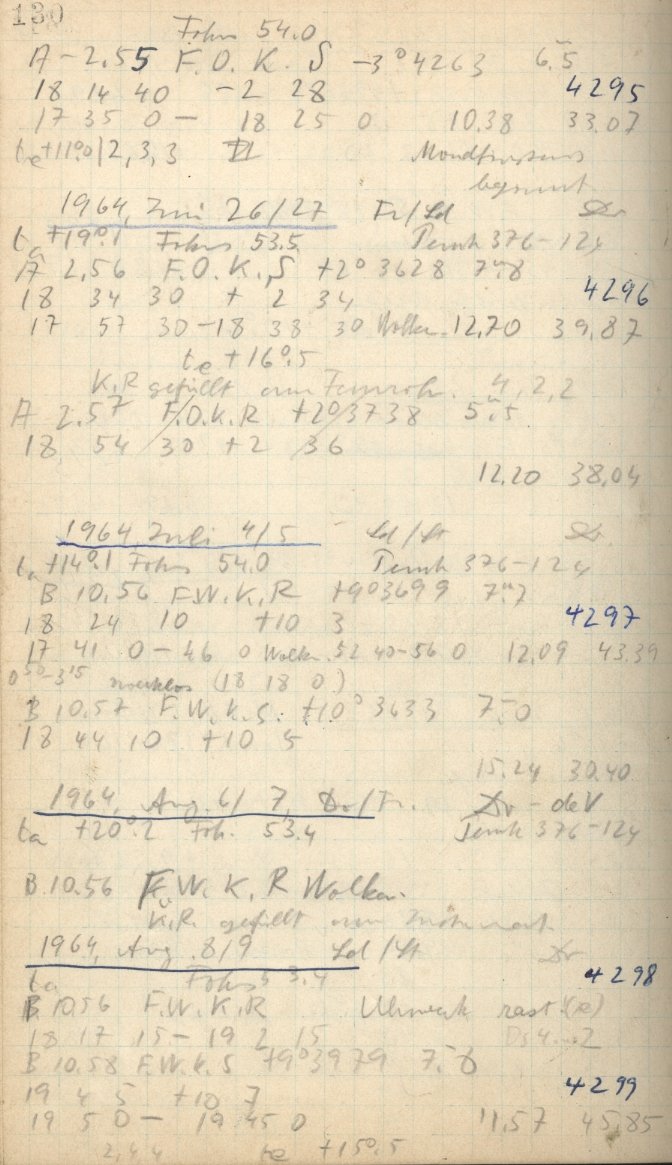 130
Fokus 54.0
A -2.55 F.O.K.S -3°4263 6.5
18 14 40 -2 28 4295
17 35 0 - 18 25 0 10.38 33.07
te +11°0 | 2, 3, 3
begrenzt
1964, Juni 26/27 Fr/Ld Dr
ta +19°.1 Fokus 53.5 376-124
A 2,56 F.O.K.S +2°3628 7.8
18 34 30 + 2 34 4296
17 57 30 - 18 38 30 Wolken 12.70 39,87
te +16°.5
K.R gefüllt am Fernrohr. 4, 2, 2
A 2.57 F.O.K.R +2°3738 5.5
18 54 30 +2 36
12.20 38,04
1964, Juli 4/5 Ld/St Dr
ta +14°.1 Fokus 54.0 376-124
B 10,56 F.W.K.R +9°3699 7.7
18 24 10 +10 3 4297
17 41 0 - 46 0 Wolken 52 40-56 0 12.09 43.39
(18 18 0)
B 10.57 F.W.K.S. +10° 3633 7.0
18 44 10 +10 5
15.24 30.40
1964, Aug. 6/7, Dr/Fr. Dr - deV
ta +20°.2 Fok. 53.4 376-124
B.10.56 F.W.K.R Wolken.
K.R. gefüllt
1964, Aug. 8/9 Ld/St Dr
ta Fokus 53.4 4298
B 10.56 F.W.K.R Uhrwerk rast
18 17 15 - 19 2 15
B 10.58 F.W.K.S +9°3979 7.8
19 4 5 +10 7 4299
19 5 0 - 19 45 0 11,57 45,85
2,4,4 te +15°.5